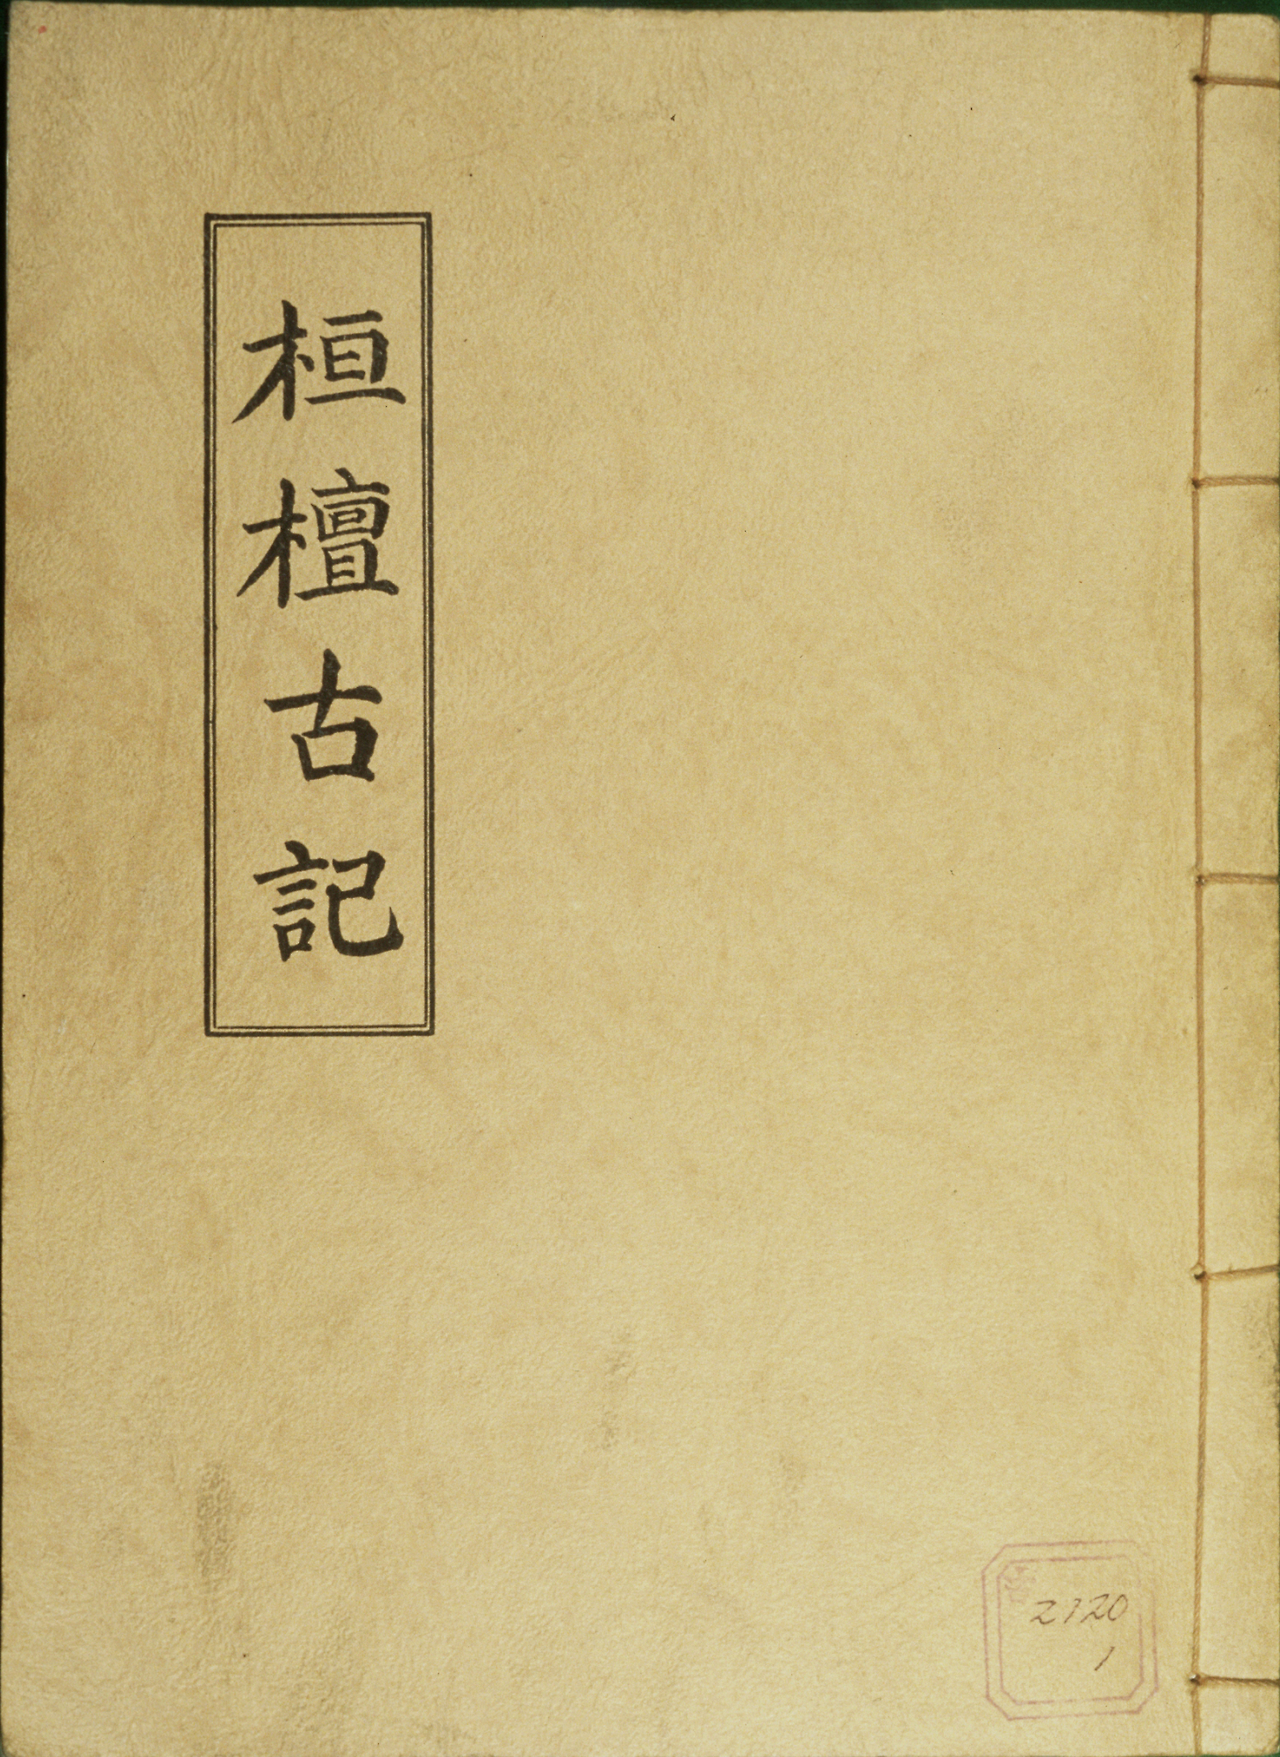 桓檀古記
2120
1